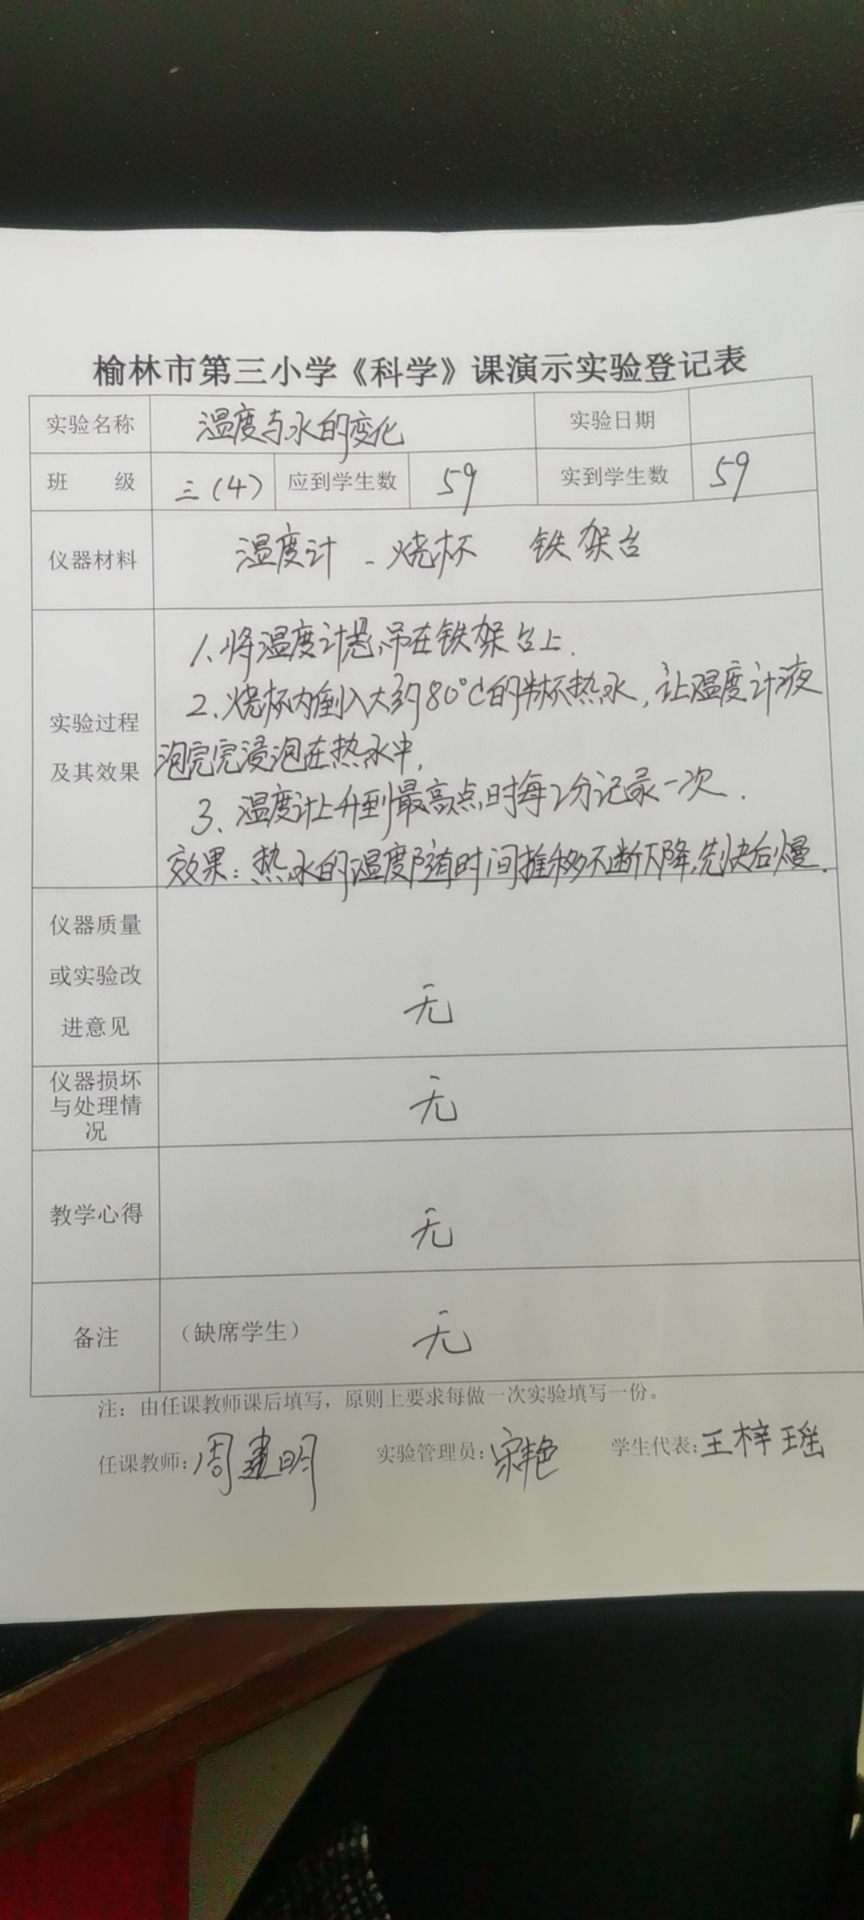 榆林市第三小学《科学》课演示实验登记表
实验名称 温度与水的变化 实验日期
班 级 三(4) 应到学生数 59 实到学生数 59
仪器材料 温度计 - 烧杯 铁架台
1、将温度计悬吊在铁架台上.
2、烧杯内倒入大约80°C的半杯热水,让温度计液
实验过程
泡完完浸泡在热水中,
及其效果
3、温度计上升到最高点时每2分记录一次.
效果:热水的温度随时间推移不断下降,先快后慢.
仪器质量
或实验改
进意见
无
仪器损坏
与处理情
况
无
教学心得 无
备注 (缺席学生) 无
注:由任课教师课后填写,原则上要求每做一次实验填写一份。
任课教师:周建明 实验管理员:宋艳 学生代表:王梓瑶